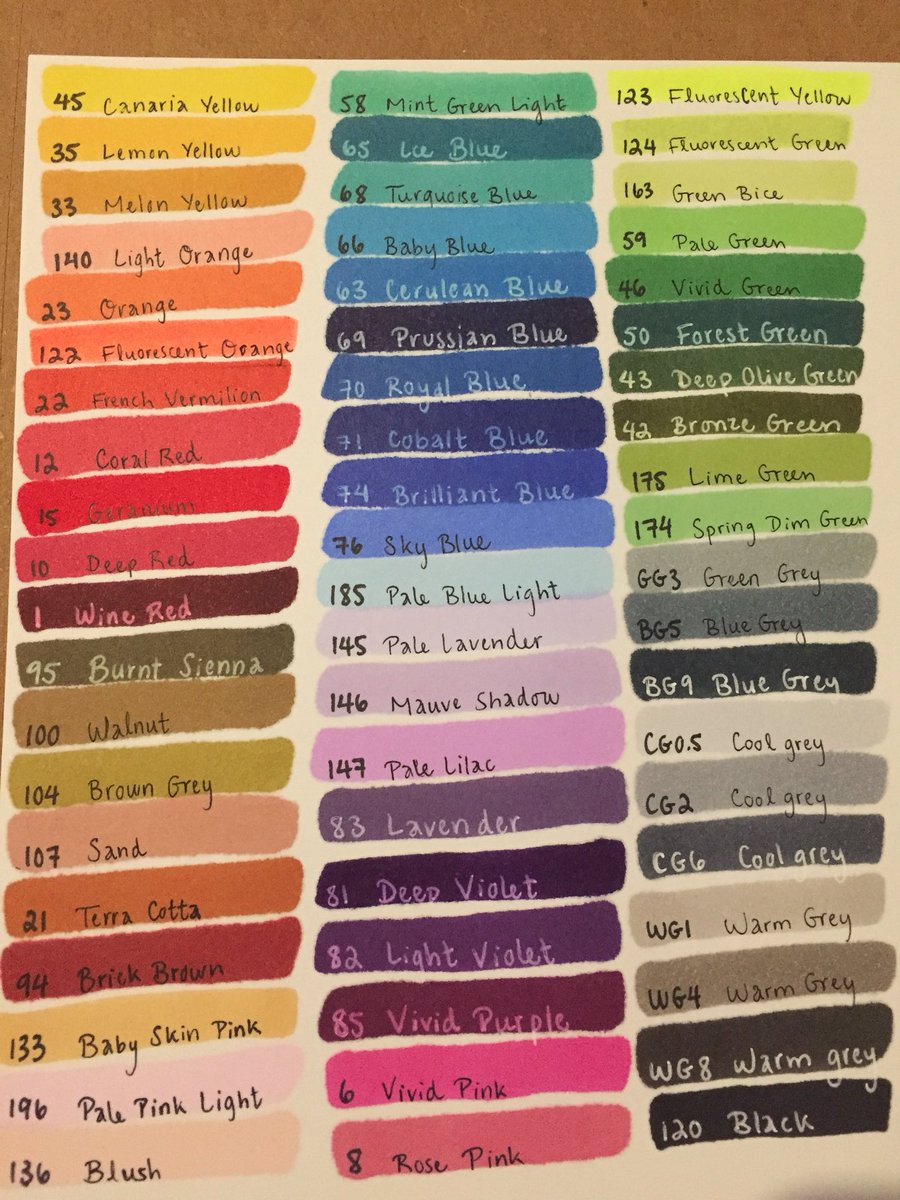 45 Canaria Yellow
35 Lemon Yellow
33 Melon Yellow
140 Light Orange
23 Orange
122 Fluorescent Orange
22 French Vermilion
12 Coral Red
15 Geranium
10 Deep Red
1 Wine Red
95 Burnt Sienna
100 Walnut
104 Brown Grey
107 Sand
21 Terra Cotta
94 Brick Brown
133 Baby Skin Pink
196 Pale Pink Light
136 Blush
58 Mint Green Light
65 Ice Blue
68 Turquoise Blue
66 Baby Blue
63 Cerulean Blue
69 Prussian Blue
70 Royal Blue
71 Cobalt Blue
74 Brilliant Blue
76 Sky Blue
185 Pale Blue Light
145 Pale Lavender
146 Mauve Shadow
147 Pale Lilac
83 Lavender
81 Deep Violet
82 Light Violet
85 Vivid Purple
6 Vivid Pink
8 Rose Pink
123 Fluorescent Yellow
124 Fluorescent Green
163 Green Bice
59 Pale Green
46 Vivid Green
50 Forest Green
43 Deep Olive Green
42 Bronze Green
175 Lime Green
174 Spring Dim Green
GG3 Green Grey
BG5 Blue Grey
BG9 Blue Grey
CG0.5 Cool grey
CG2 Cool grey
CG6 Cool grey
WG1 Warm Grey
WG4 Warm Grey
WG8 Warm grey
120 Black